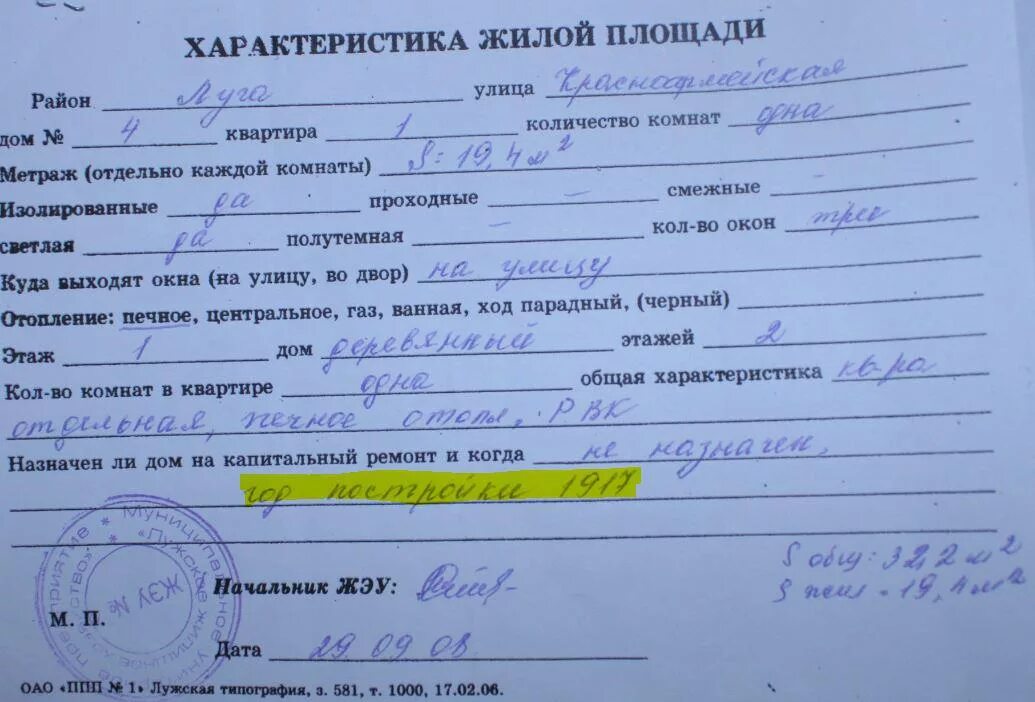 ХАРАКТЕРИСТИКА ЖИЛОЙ ПЛОЩАДИ
Район Луга улица Красноармейская
дом № 4 квартира 1 количество комнат одна
Метраж (отдельно каждой комнаты) S = 19,4 м²
Изолированные да проходные – смежные –
светлая да полутемная – кол-во окон три
Куда выходят окна (на улицу, во двор) на улицу
Отопление: печное, центральное, газ, ванная, ход парадный, (черный)
Этаж 1 дом деревянный этажей 2
Кол-во комнат в квартире одна общая характеристика кв-ра
отдельная, печное отопл, РВК
Назначен ли дом на капитальный ремонт и когда не назначен,
год постройки 1917
S общ: 32,2 м²
S жил - 19,4 м²
Начальник ЖЭУ:
М. П.
Дата 29.09.08
Муниципальное предприятие
«Лужское жилищное хозяйство»
ЖЭУ №
ОАО «ППП № 1» Лужская типография, з. 581, т. 1000, 17.02.06.